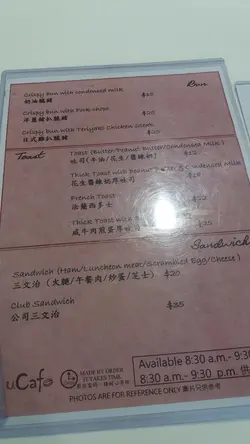 Bun
Crispy Bun with condensed milk $20
奶油脆豬
Crispy Bun with Pork chops $20
洋蔥豬扒脆豬
Crispy Bun with Teriyaki Chicken Steak $20
日式雞扒脆豬
Toast
Toast (Butter/Peanut Butter/Condensed Milk)
吐司(牛油/花生醬/煉奶) $12
Thick Toast with Peanut Condensed Milk
花生醬煉奶厚吐司
French Toast
法蘭西多士
Thick Toast with
咸牛肉煎蛋厚吐
Sandwich
Sandwich (Ham/Luncheon meat/Scrambled Egg/Cheese)
三文治 (火腿/午餐肉/炒蛋/芝士) $20
Club Sandwich $35
公司三文治
uCafe
MADE BY ORDER
IT TAKES TIME.
Available 8:30 a.m.- 9:30
8:30 a.m.- 9:30 p.m. 供
PHOTOS ARE FOR REFERENCE ONLY 圖片只供參考